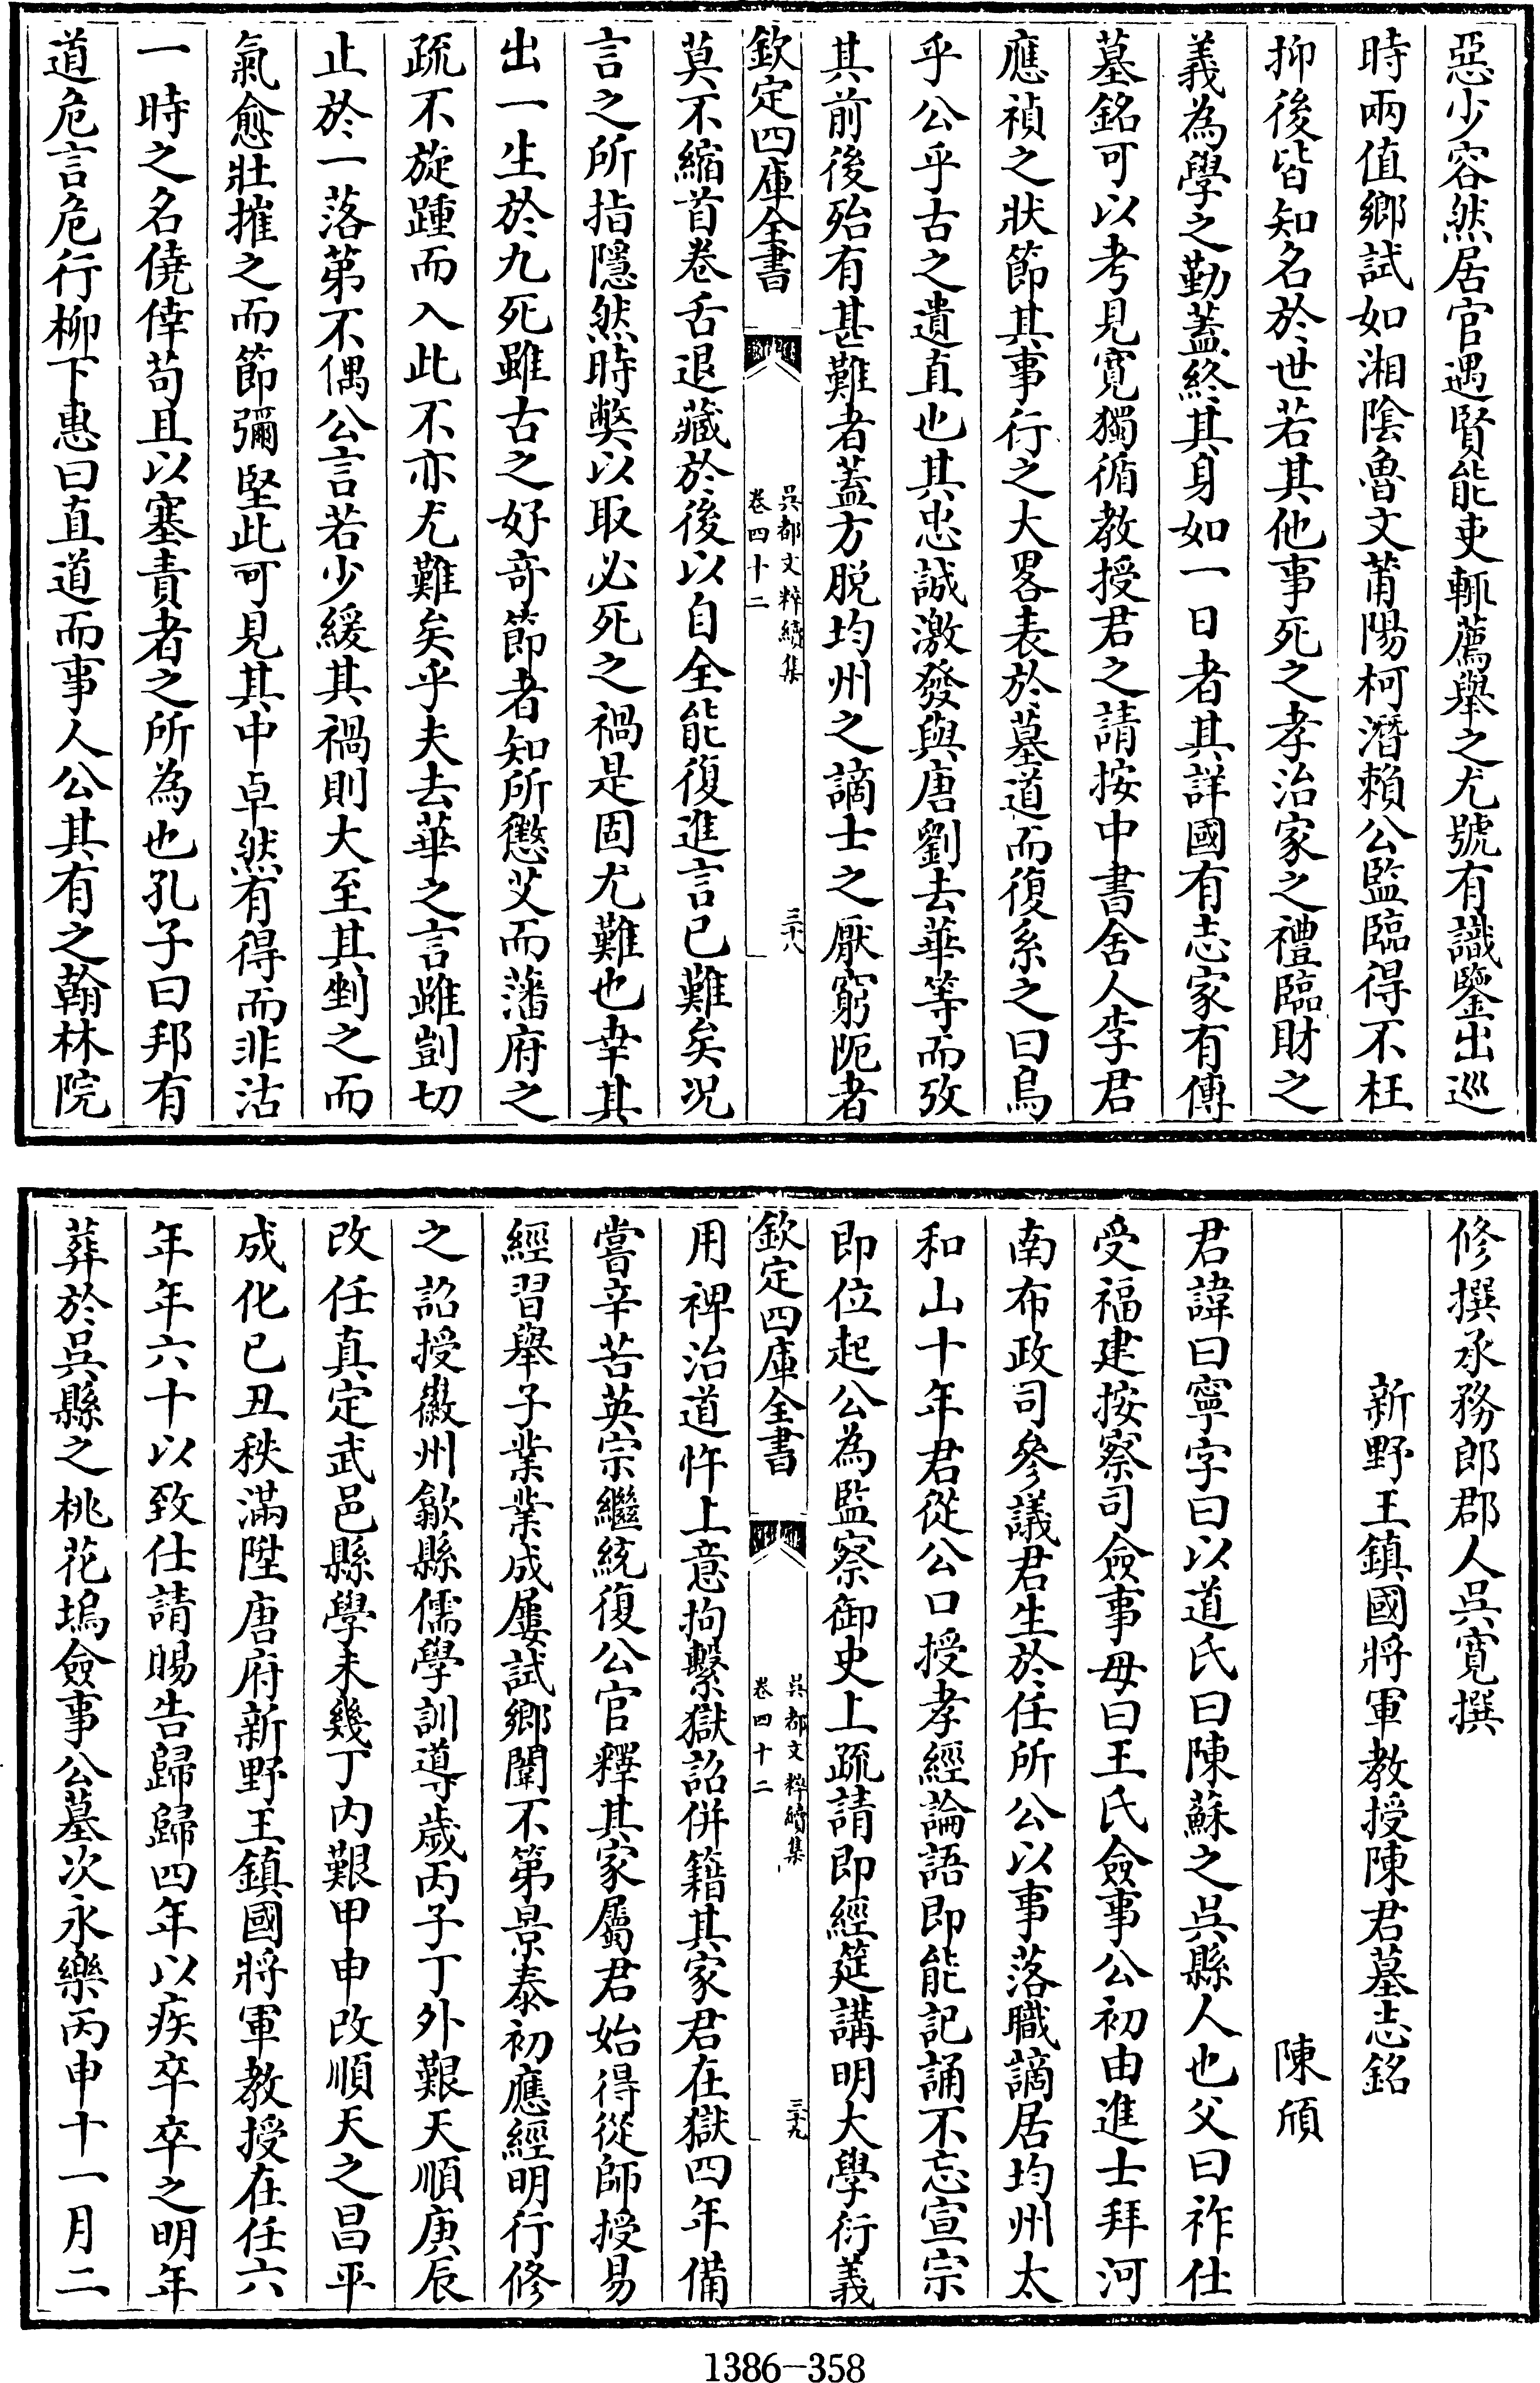 惡少容然居官遇賢能吏輒薦舉之尤號有識鑒出巡
時兩值鄉試如湘陰魯文莆陽柯潛賴公監臨得不枉
抑後皆知名於世若其他事死之孝治家之禮臨財之
義為學之勤蓋終其身如一日者其詳國有志家有傳
墓銘可以考見寬獨循教授君之請按中書舍人李君
應禎之狀節其事行之大畧表於墓道而復系之曰烏
乎公乎古之遺直也其忠誠激發與唐劉去華等而攷
其前後殆有甚難者蓋方脱均州之謫士之厭窮阨者
欽定四庫全書
吳都文粹續集
卷四十二
三十八
莫不縮首卷舌退藏於後以自全能復進言已難矣况
言之所指隱然時弊以取必死之禍是固尤難也幸其
出一生於九死雖古之好奇節者知所懲艾而藩府之
疏不旋踵而入此不亦尤難矣乎夫去華之言雖剴切
止於一落第不偶公言若少緩其禍則大至其剉之而
氣愈壯摧之而節彌堅此可見其中卓然有得而非沽
一時之名僥倖苟且以塞責者之所為也孔子曰邦有
道危言危行柳下惠曰直道而事人公其有之翰林院
修撰承務郎郡人吳寛撰
新野王鎮國將軍教授陳君墓志銘
陳頎
君諱曰寧字曰以道氏曰陳蘇之吳縣人也父曰祚仕
受福建按察司僉事母曰王氏僉事公初由進士拜河
南布政司參議君生於任所公以事落職謫居均州太
和山十年君從公口授孝經論語即能記誦不忘宣宗
即位起公為監察御史上疏請即經筵講明大學衍義
欽定四庫全書
吳都文粹續集
卷四十二
三十九
用裨治道忤上意拘繫獄詔併籍其家君在獄四年備
嘗辛苦英宗繼統復公官釋其家屬君始得從師授易
經習舉子業業成屢試鄉闈不第景泰初應經明行修
之詔授徽州歙縣儒學訓導歲丙子丁外艱天順庚辰
改任真定武邑縣學未幾丁内艱甲申改順天之昌平
成化己丑秩滿陞唐府新野王鎮國將軍教授在任六
年年六十以致仕請賜告歸歸四年以疾卒卒之明年
葬於吳縣之桃花塢僉事公墓次永樂丙申十一月二
1386-358